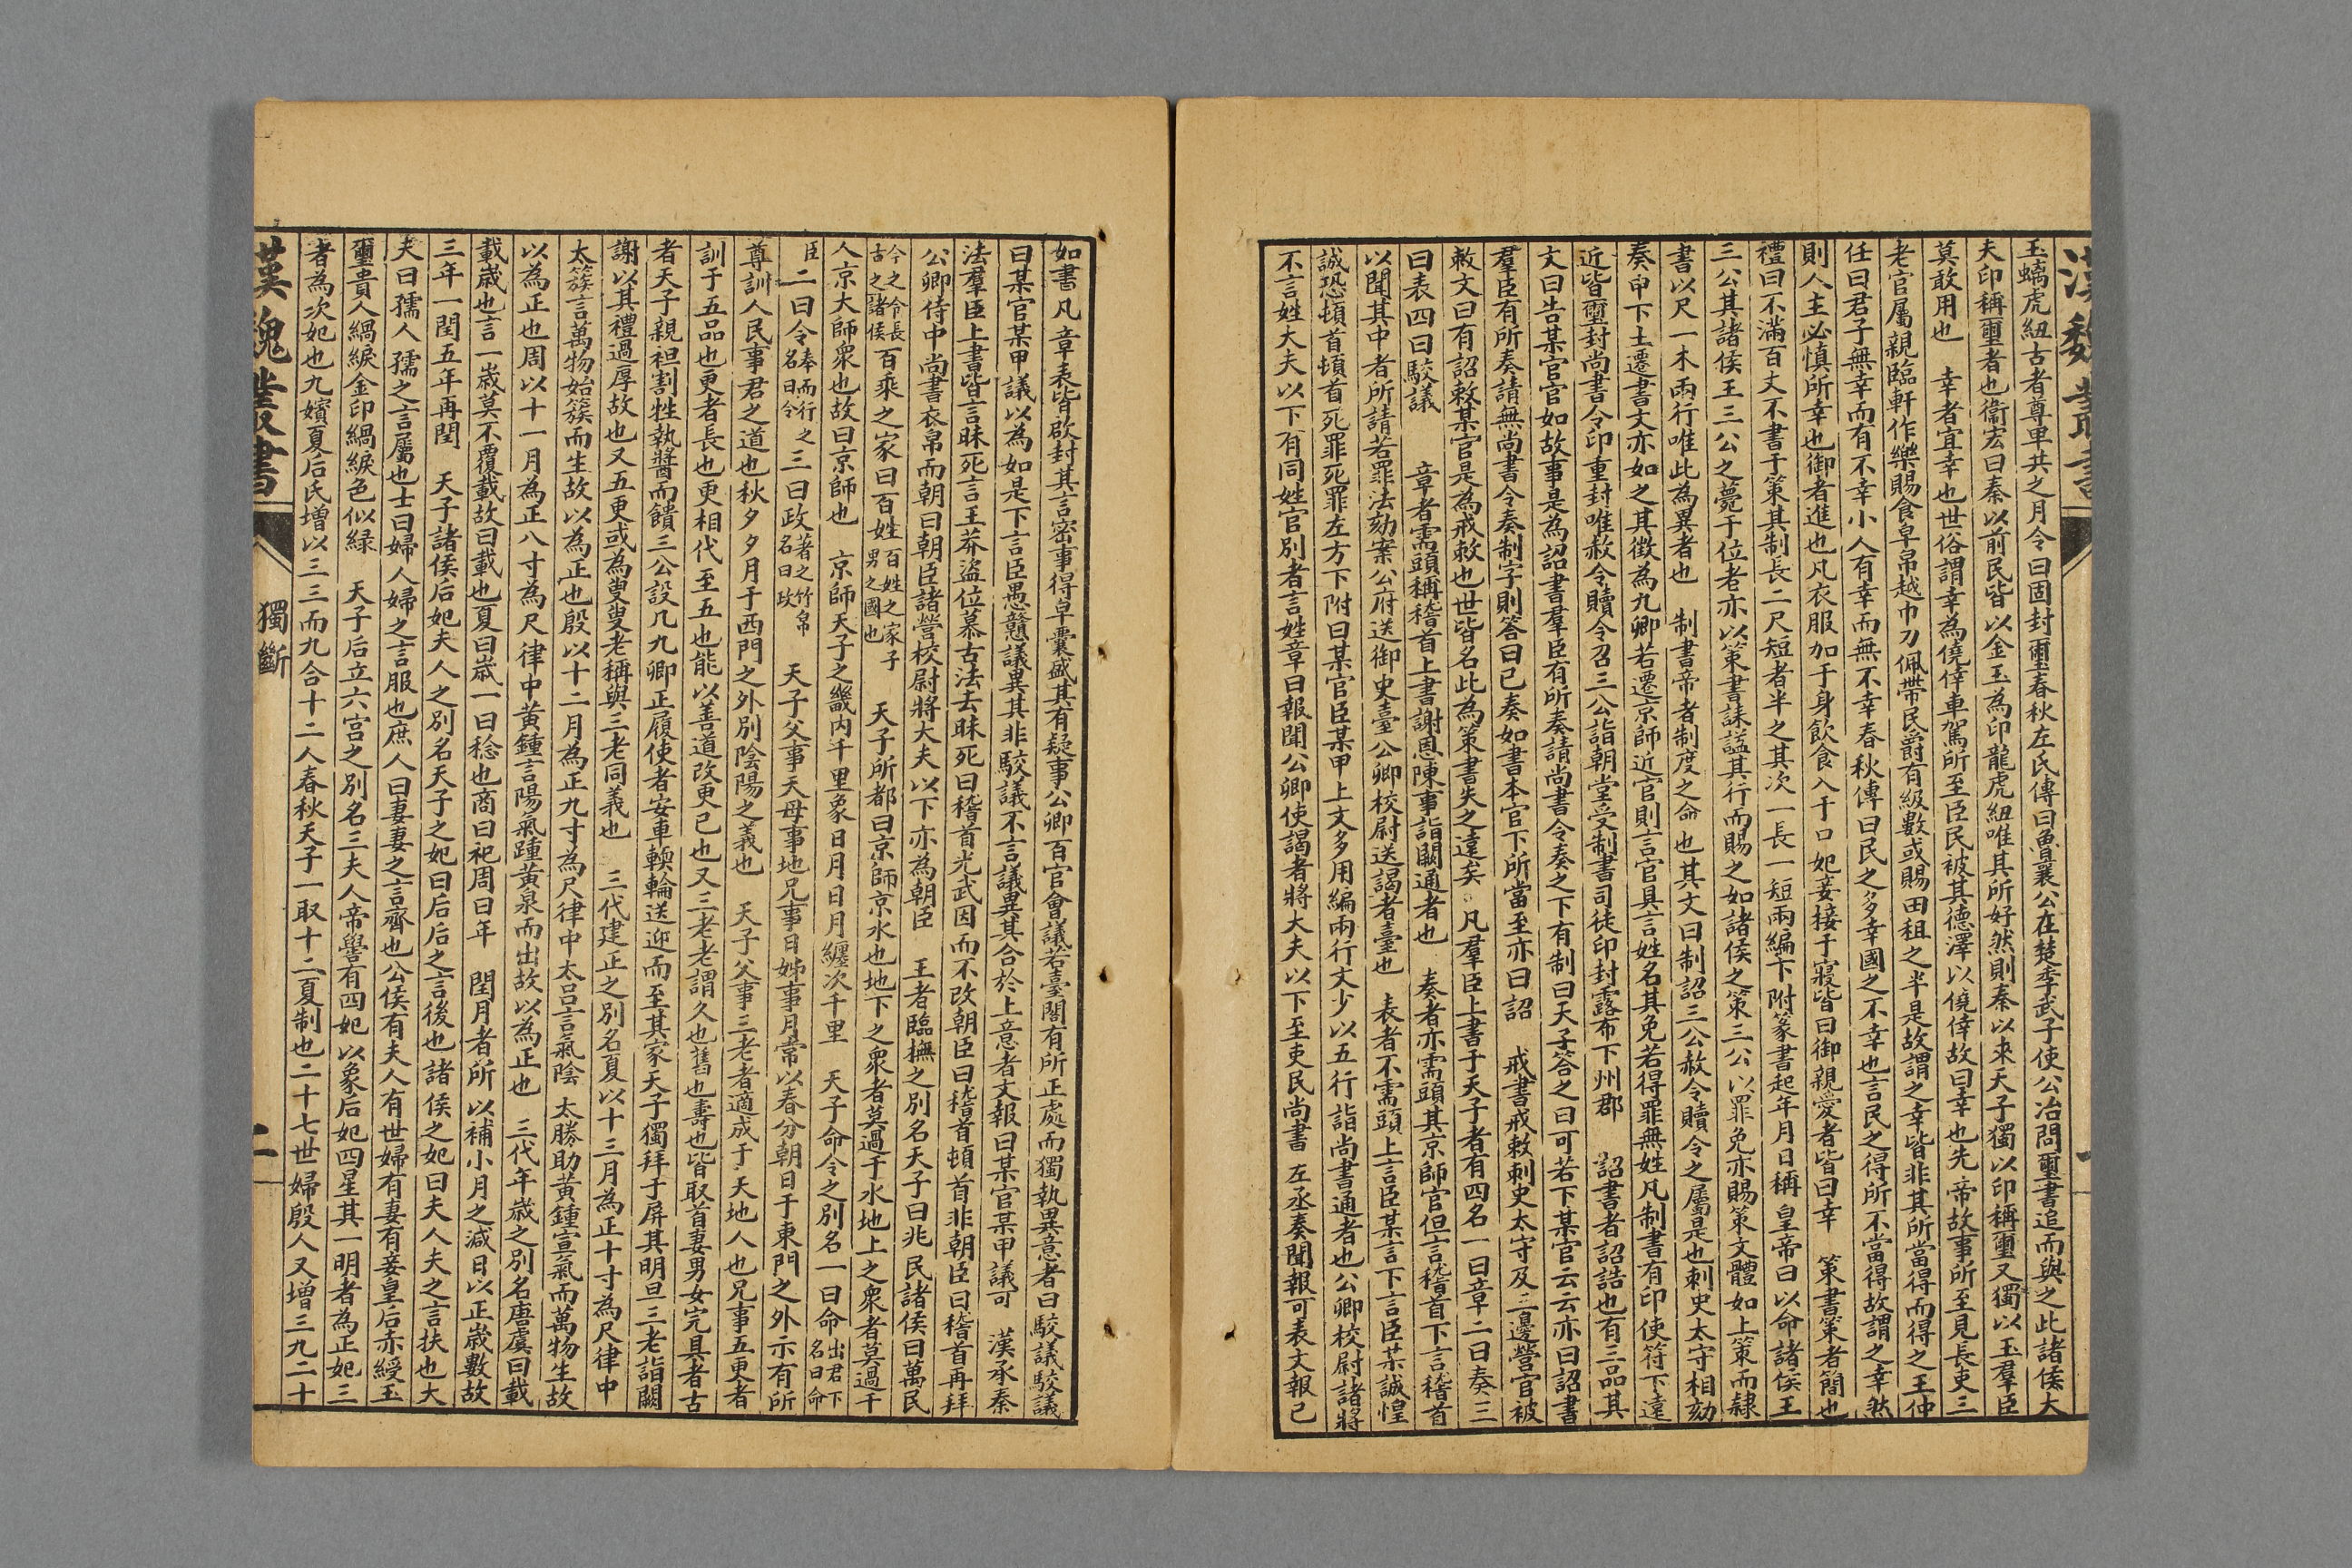 漢魏叢書
玉螭虎紐古者尊卑共之月令曰固封璽春秋左氏傳曰魯襄公在楚季武子使公冶問璽書追而與之此諸侯大
夫印稱璽者也衞宏曰秦以前民皆以金玉為印龍虎紐唯其所好然則秦以來天子獨以印稱璽又獨以玉羣臣
莫敢用也　幸者宜幸也世俗謂幸為僥倖車駕所至臣民被其德澤以僥倖故曰幸也先帝故事所至見長吏三
老官屬親臨軒作樂賜食皁帛越巾刀佩帶民爵有級數或賜田租之半是故謂之幸皆非其所當得而得之王仲
任曰君子無幸而有不幸小人有幸而無不幸春秋傳曰民之多幸國之不幸也言民之得所不當得故謂之幸然
則人主必慎所幸也御者進也凡衣服加于身飲食入于口妃妾接于寢皆曰御親愛者皆曰幸　策書策者簡也
禮曰不滿百丈不書于策其制長二尺短者半之其次一長一短兩編下附篆書起年月日稱皇帝曰以命諸侯王
三公其諸侯王三公之薨于位者亦以策書誄諡其行而賜之如諸侯之策三公以罪免亦賜策文體如上策而隸
書以尺一木兩行唯此為異者也　制書帝者制度之命也其文曰制詔三公赦令贖令之屬是也刺史太守相劾
奏申下土遷書文亦如之其徵為九卿若遷京師近官則言官具言姓名其免若得罪無姓凡制書有印使符下遠
近皆璽封尚書令印重封唯赦令贖令召三公詣朝堂受制書司徒印封露布下州郡　詔書者詔誥也有三品其
文曰告某官官如故事是為詔書羣臣有所奏請尚書令奏之下有制曰天子答之曰可若下某官云云亦曰詔書
羣臣有所奏請無尚書令奏制字則答曰已奏如書本官下所當至亦曰詔　戒書戒敕刺史太守及三邊營官被
敕文曰有詔敕某官是為戒敕也世皆名此為策書失之遠矣　凡羣臣上書于天子者有四名一曰章二曰奏三
曰表四曰駮議　章者需頭稱稽首上書謝恩陳事詣闕通者也　奏者亦需頭其京師官但言稽首下言稽首
以聞其中者所請若罪法劾案公府送御史臺公卿校尉送謁者臺也　表者不需頭上言臣某言下言臣某誠惶
誠恐頓首頓首死罪死罪左方下附曰某官臣某甲上文多用編兩行文少以五行詣尚書通者也公卿校尉諸將
不言姓大夫以下有同姓官別者言姓章曰報聞公卿使謁者將大夫以下至吏民尚書左丞奏聞報可表文報已
如書凡章表皆啟封其言密事得皁囊盛其有疑事公卿百官會議若臺閣有所正處而獨執異意者曰駮議駮議
曰某官某甲議以為如是下言臣愚戇議異其非駮議不言議異其合於上意者文報曰某官某甲議可　漢承秦
法羣臣上書皆言昧死言王莽盜位慕古法去昧死曰稽首光武因而不改朝臣曰稽首頓首非朝臣曰稽首再拜
公卿侍中尚書衣帛而朝曰朝臣諸營校尉將大夫以下亦為朝臣　王者臨撫之別名天子曰兆民諸侯曰萬民
今之令長古之諸侯百乘之家曰百姓百姓之家子男之國也　天子所都曰京師京水也地下之衆者莫過于水地上之衆者莫過于
人京大師衆也故曰京師也　京師天子之畿內千里象日月日月纏次千里　天子命令之別名一曰命出君下臣名曰命
二曰令奉而行之名曰令三曰政著之竹帛名曰政　天子父事天母事地兄事日姊事月常以春分朝日于東門之外示有所
尊訓人民事君之道也秋夕夕月于西門之外別陰陽之義也　天子父事三老者適成于天地人也兄事五更者
訓于五品也更者長也更相代至五也能以善道改更己也又三老老謂久也舊也壽也皆取首妻男女完具者古
者天子親袒割牲執醬而饋三公設几九卿正履使者安車輭輪送迎而至其家天子獨拜于屏其明旦三老詣闕
謝以其禮過厚故也又五更或為叟叟老稱與三老同義也　三代建正之別名夏以十三月為正十寸為尺律中
太簇言萬物始簇而生故以為正也殷以十二月為正九寸為尺律中太呂言氣陰太勝助黃鍾宣氣而萬物生故
以為正也周以十一月為正八寸為尺律中黃鍾言陽氣踵黃泉而出故以為正也　三代年歲之別名唐虞曰載
載歲也言一歲莫不覆載故曰載也夏曰歲一曰稔也商曰祀周曰年　閏月者所以補小月之減日以正歲數故
三年一閏五年再閏　天子諸侯后妃夫人之別名天子之妃曰后后之言後也諸侯之妃曰夫人夫之言扶也大
夫曰孺人孺之言屬也士曰婦人婦之言服也庶人曰妻妻之言齊也公侯有夫人有世婦有妻有妾皇后赤綬玉
璽貴人緺綟金印緺綟色似綠　天子后立六宮之別名三夫人帝嚳有四妃以象后妃四星其一明者為正妃三
者為次妃也九嬪夏后氏增以三三而九合十二人春秋天子一取十二夏制也二十七世婦殷人又增三九二十
漢魏叢書
獨斷
二